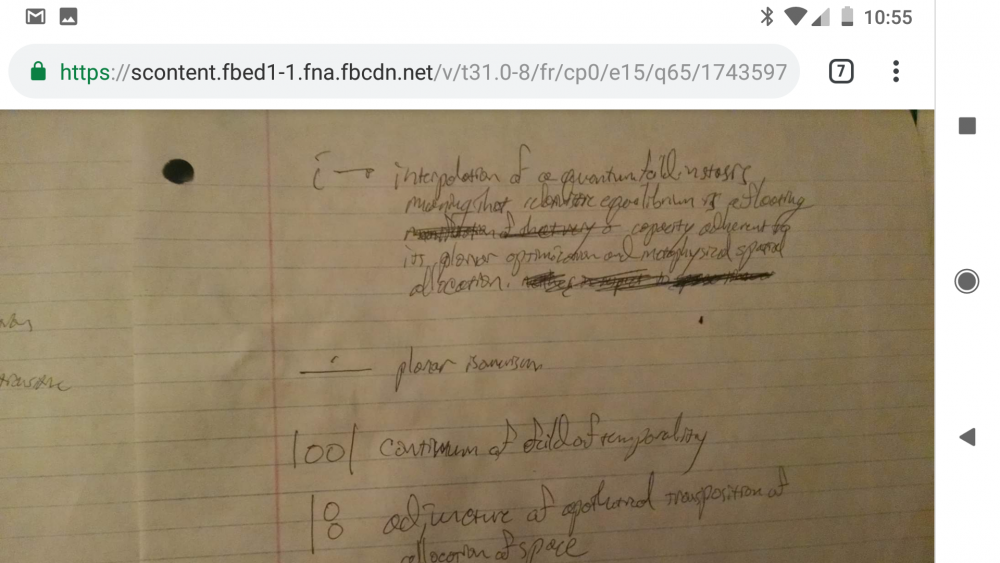 10:55
https://scontent.fbed1-1.fna.fbcdn.net/v/t31.0-8/fr/cp0/e15/q65/1743597
7
i → interpolation of a quantum field in stasis,
meaning that equilibrium is reflecting
a capacity adherent by
its planar optimization and metaphysical spatial
allocation.
planar isomerism
|00| continuum of field of temporality
|8 adjuncture of transposition of
allocation of space